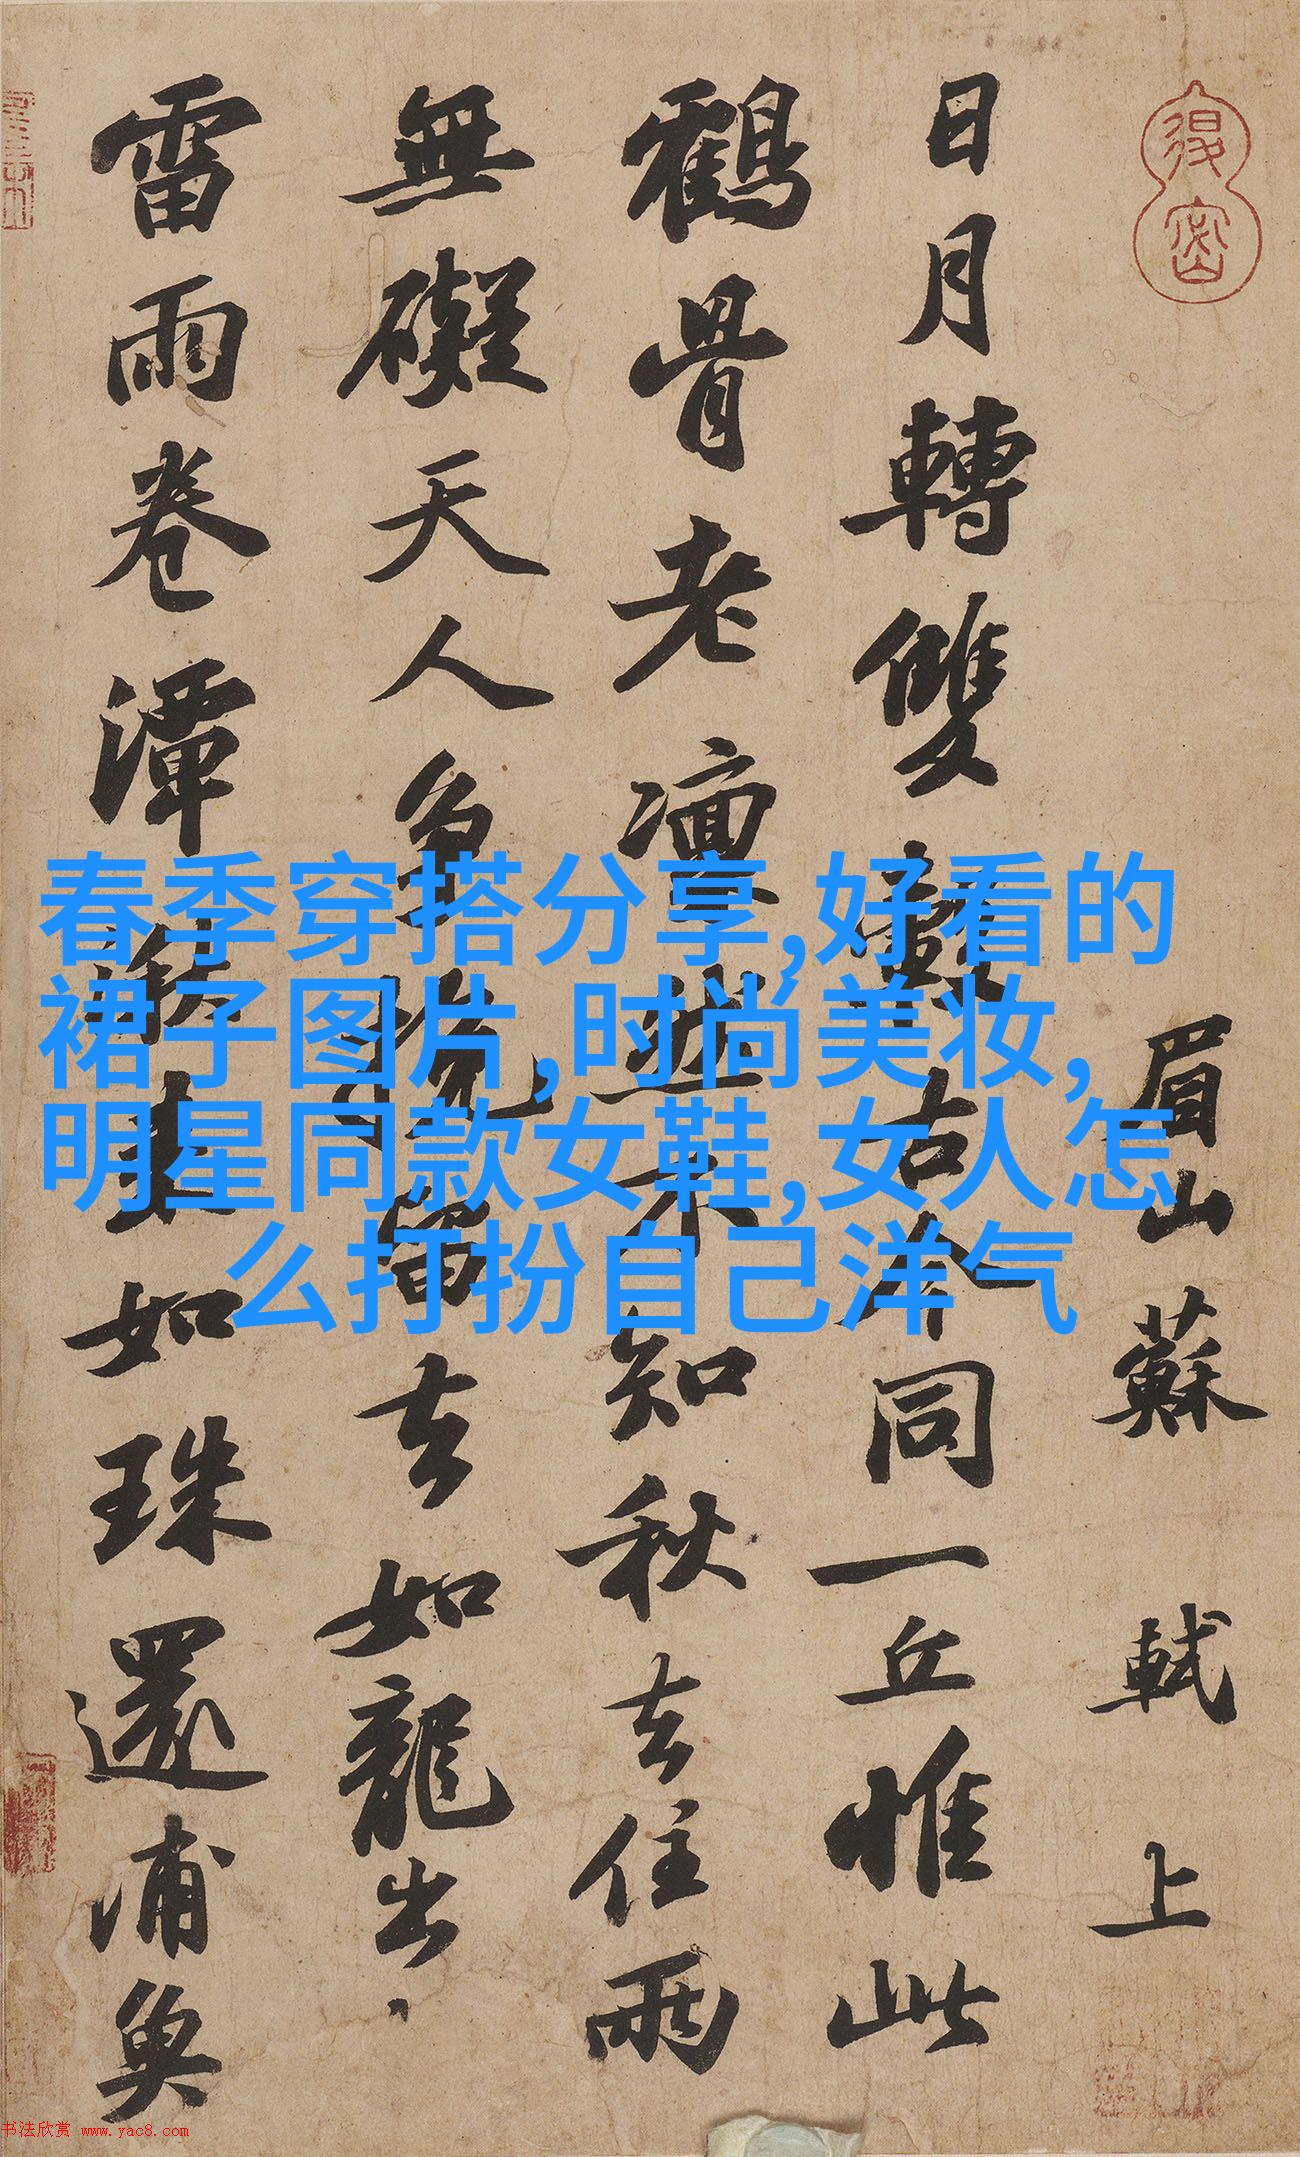 眉山蘇軾上
日月轉雙轂古今同一丘惟此
鶴骨老凜然不知秋去住兩
無礙天人爭挽留去如龍出
雷雨卷潭湫來如珠還浦魚
春季穿搭分享,好看的
裙子图片,时尚美妆,
明星同款女鞋,女人怎
么打扮自己洋气
书法欣赏 www.yac8.com